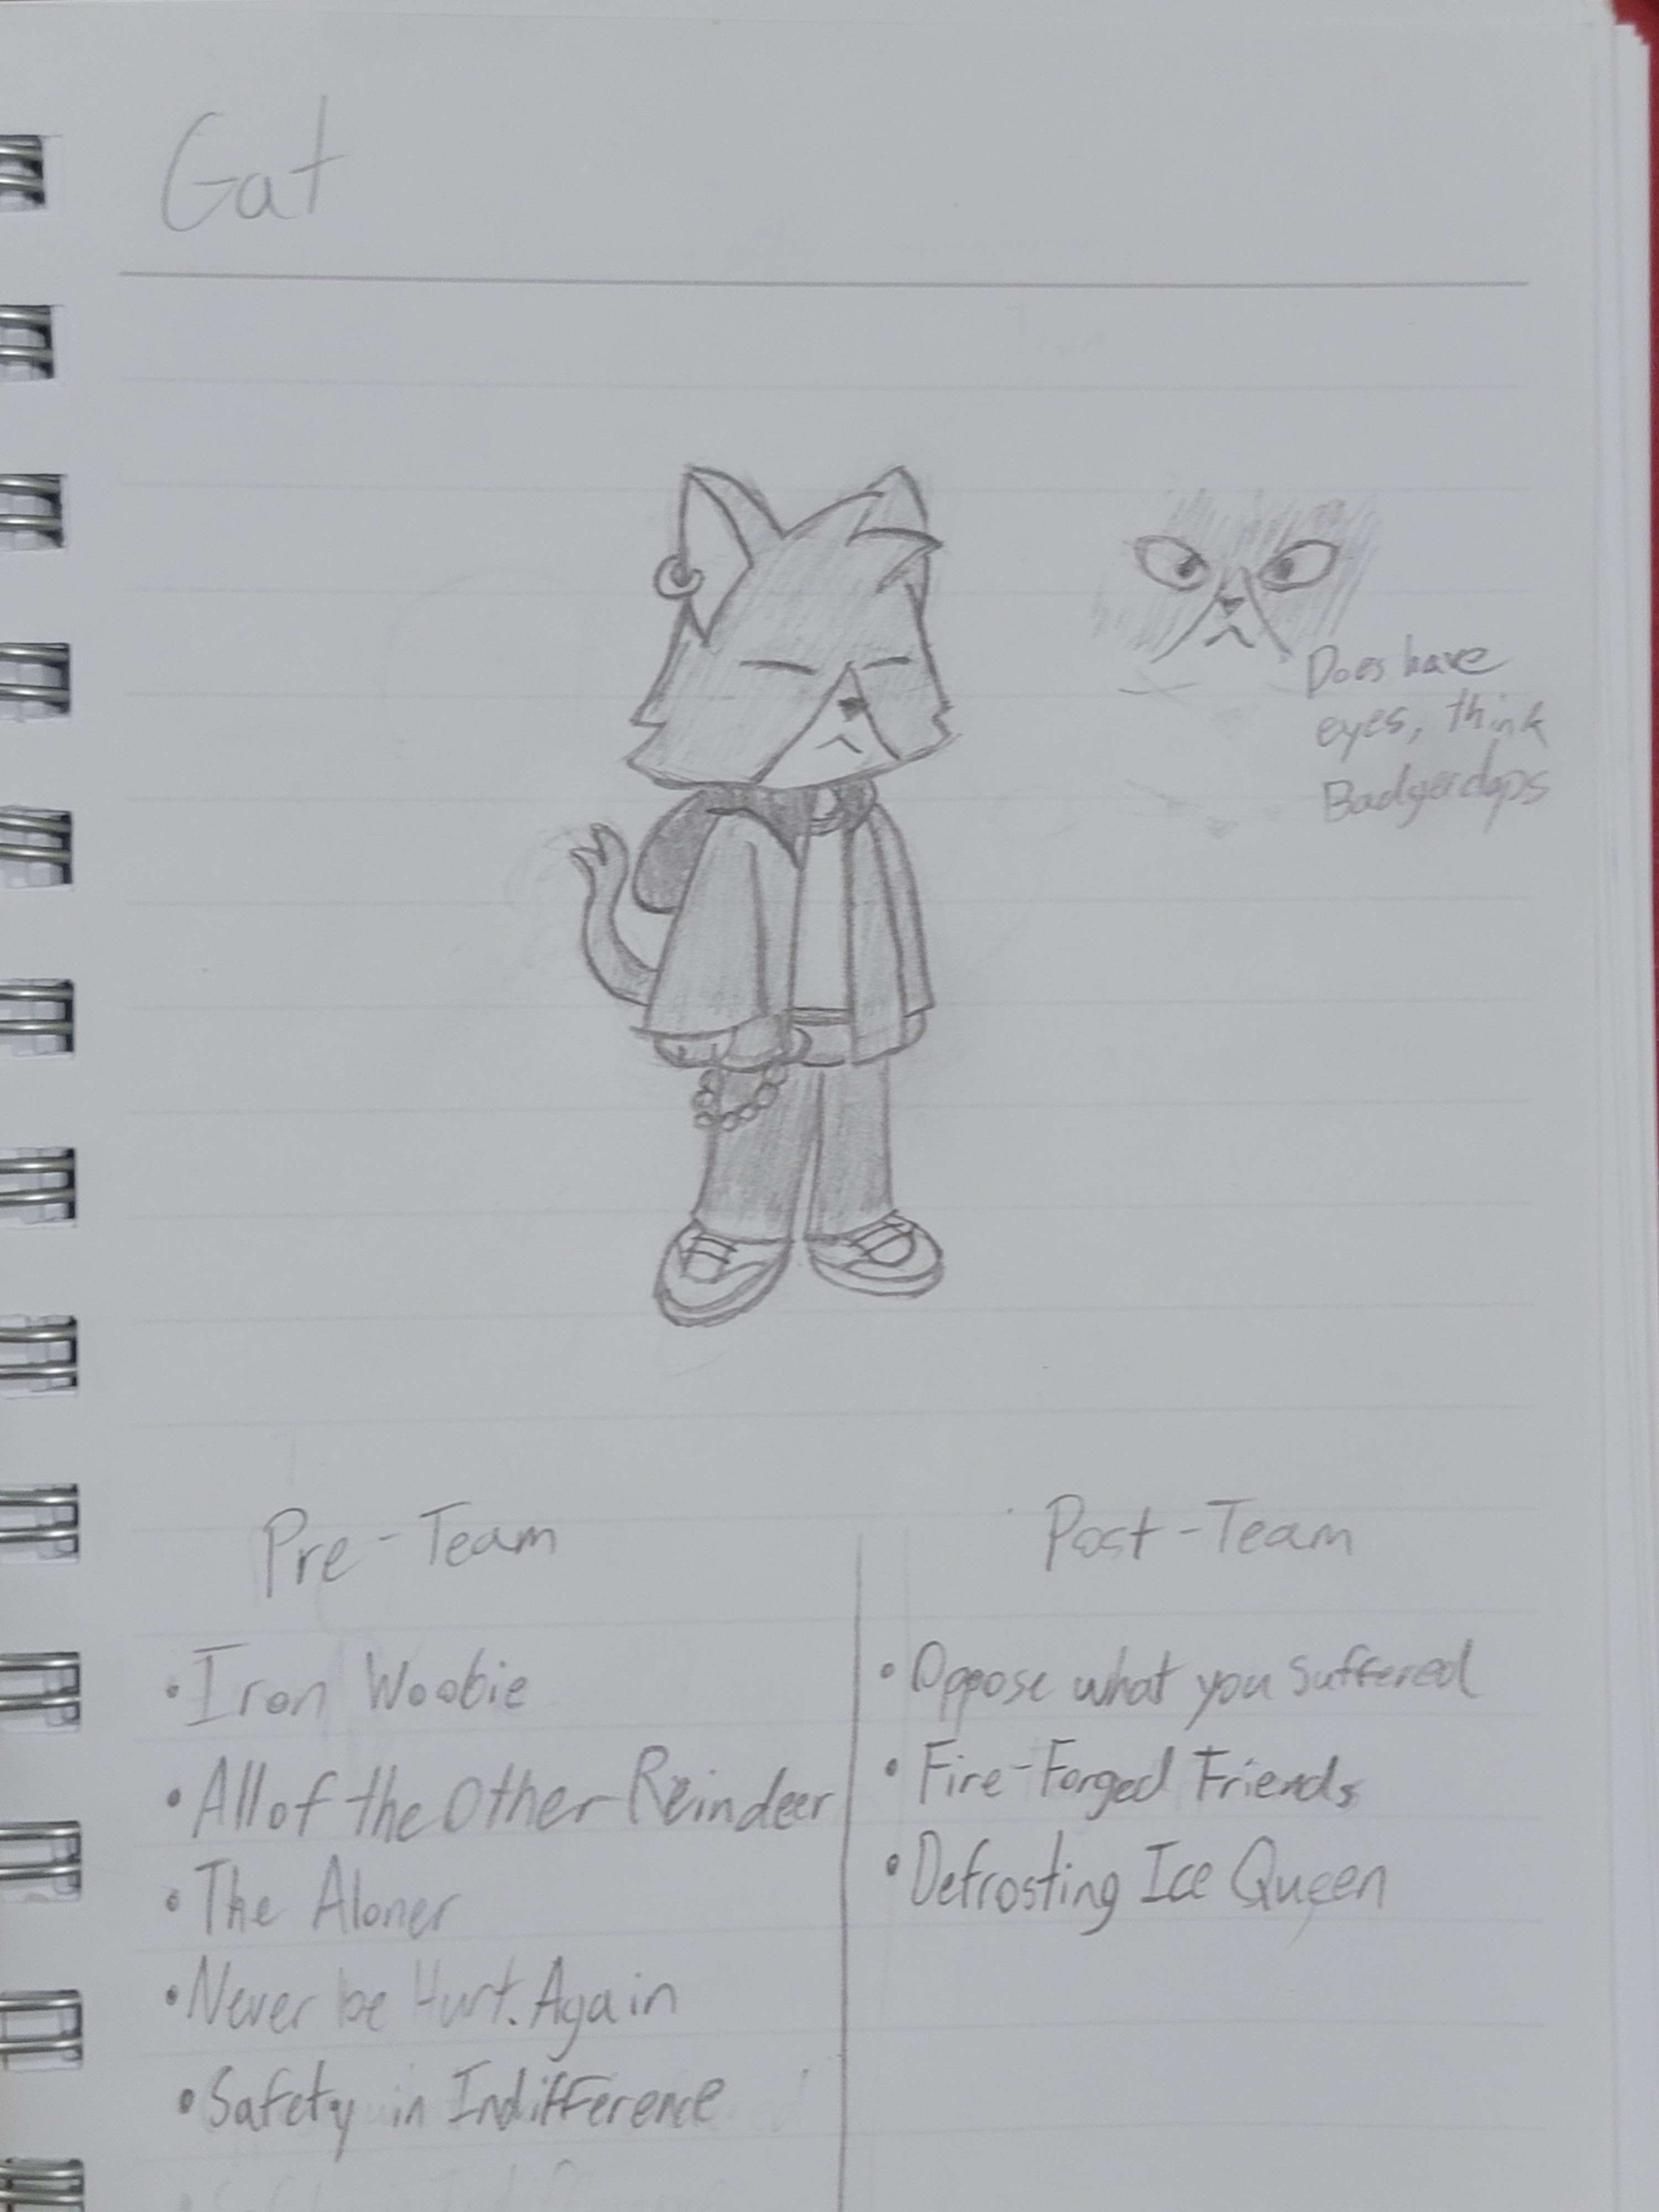 Gat
Does have
eyes, think
Badgerclops
Pre-Team
• Iron Woobie
• All of the Other Reindeer
• The Aloner
• Never be Hurt. Again
• Safety in Indifference
Post-Team
• Oppose what you suffered
• Fire-Forged Friends
• Defrosting Ice Queen